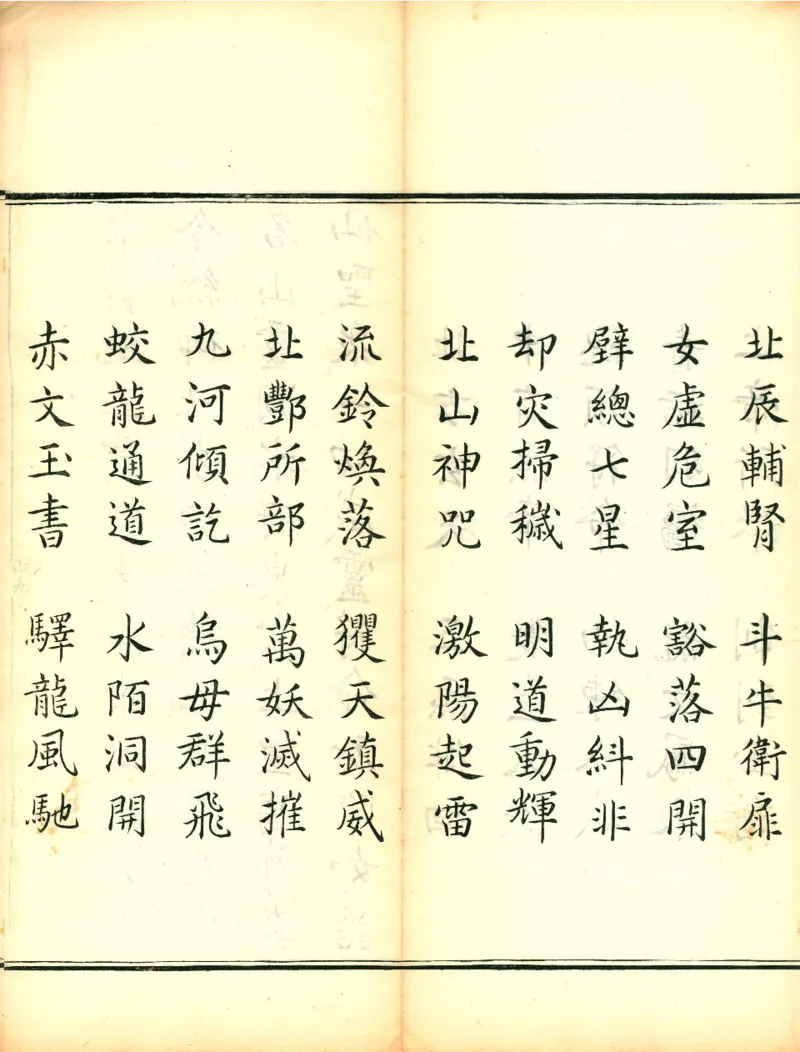 北辰輔腎 斗牛衛扉
女虛危室 豁落四開
壁總七星 執凶糾非
却灾掃穢 明道動輝
北山神咒 激陽起雷
流鈴煥落 玃天鎮威
北酆所部 萬妖滅摧
九河傾訖 鳥母群飛
蛟龍通道 水陌洞開
赤文玉書 驛龍風馳